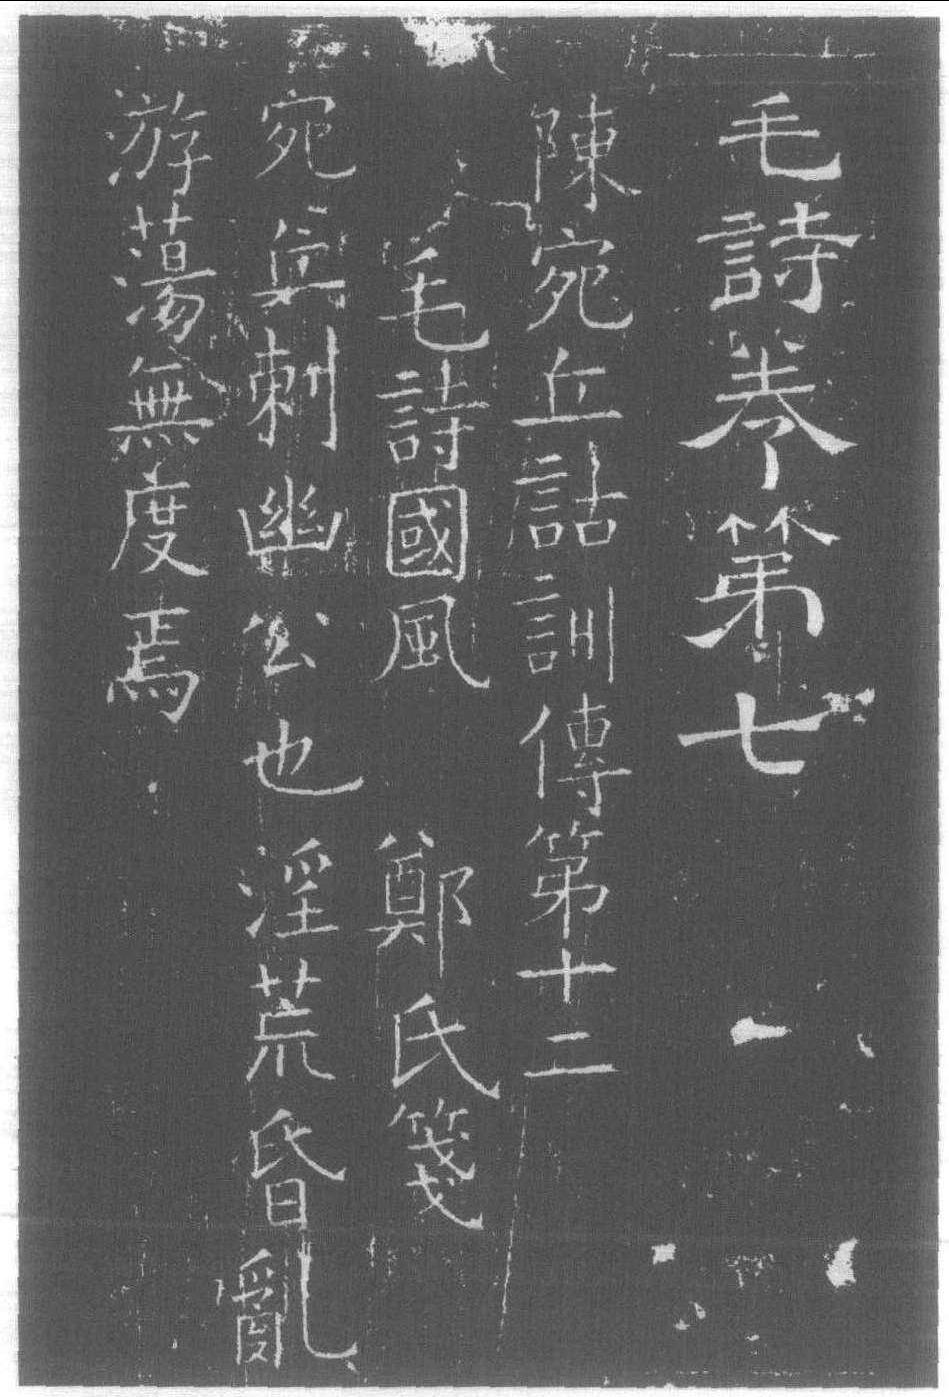 毛詩卷第七
陳宛丘詁訓傳第十二
毛詩國風 鄭氏箋
宛丘刺幽公也淫荒昏亂
游蕩無度焉